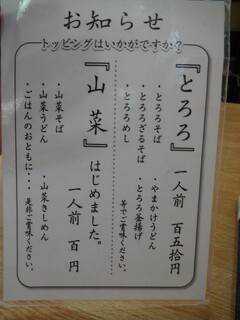 お知らせ
トッピングはいかがですか？
『とろろ』一人前 百五十円
・とろろそば ・やまかけうどん
・とろろざるそば ・とろろ釜揚げ
・とろろめし 等でご賞味ください。
『山菜』はじめました。
一人前 百円
・山菜そば ・山菜きしめん
・山菜うどん
・ごはんのおともに・・・是非ご賞味ください。